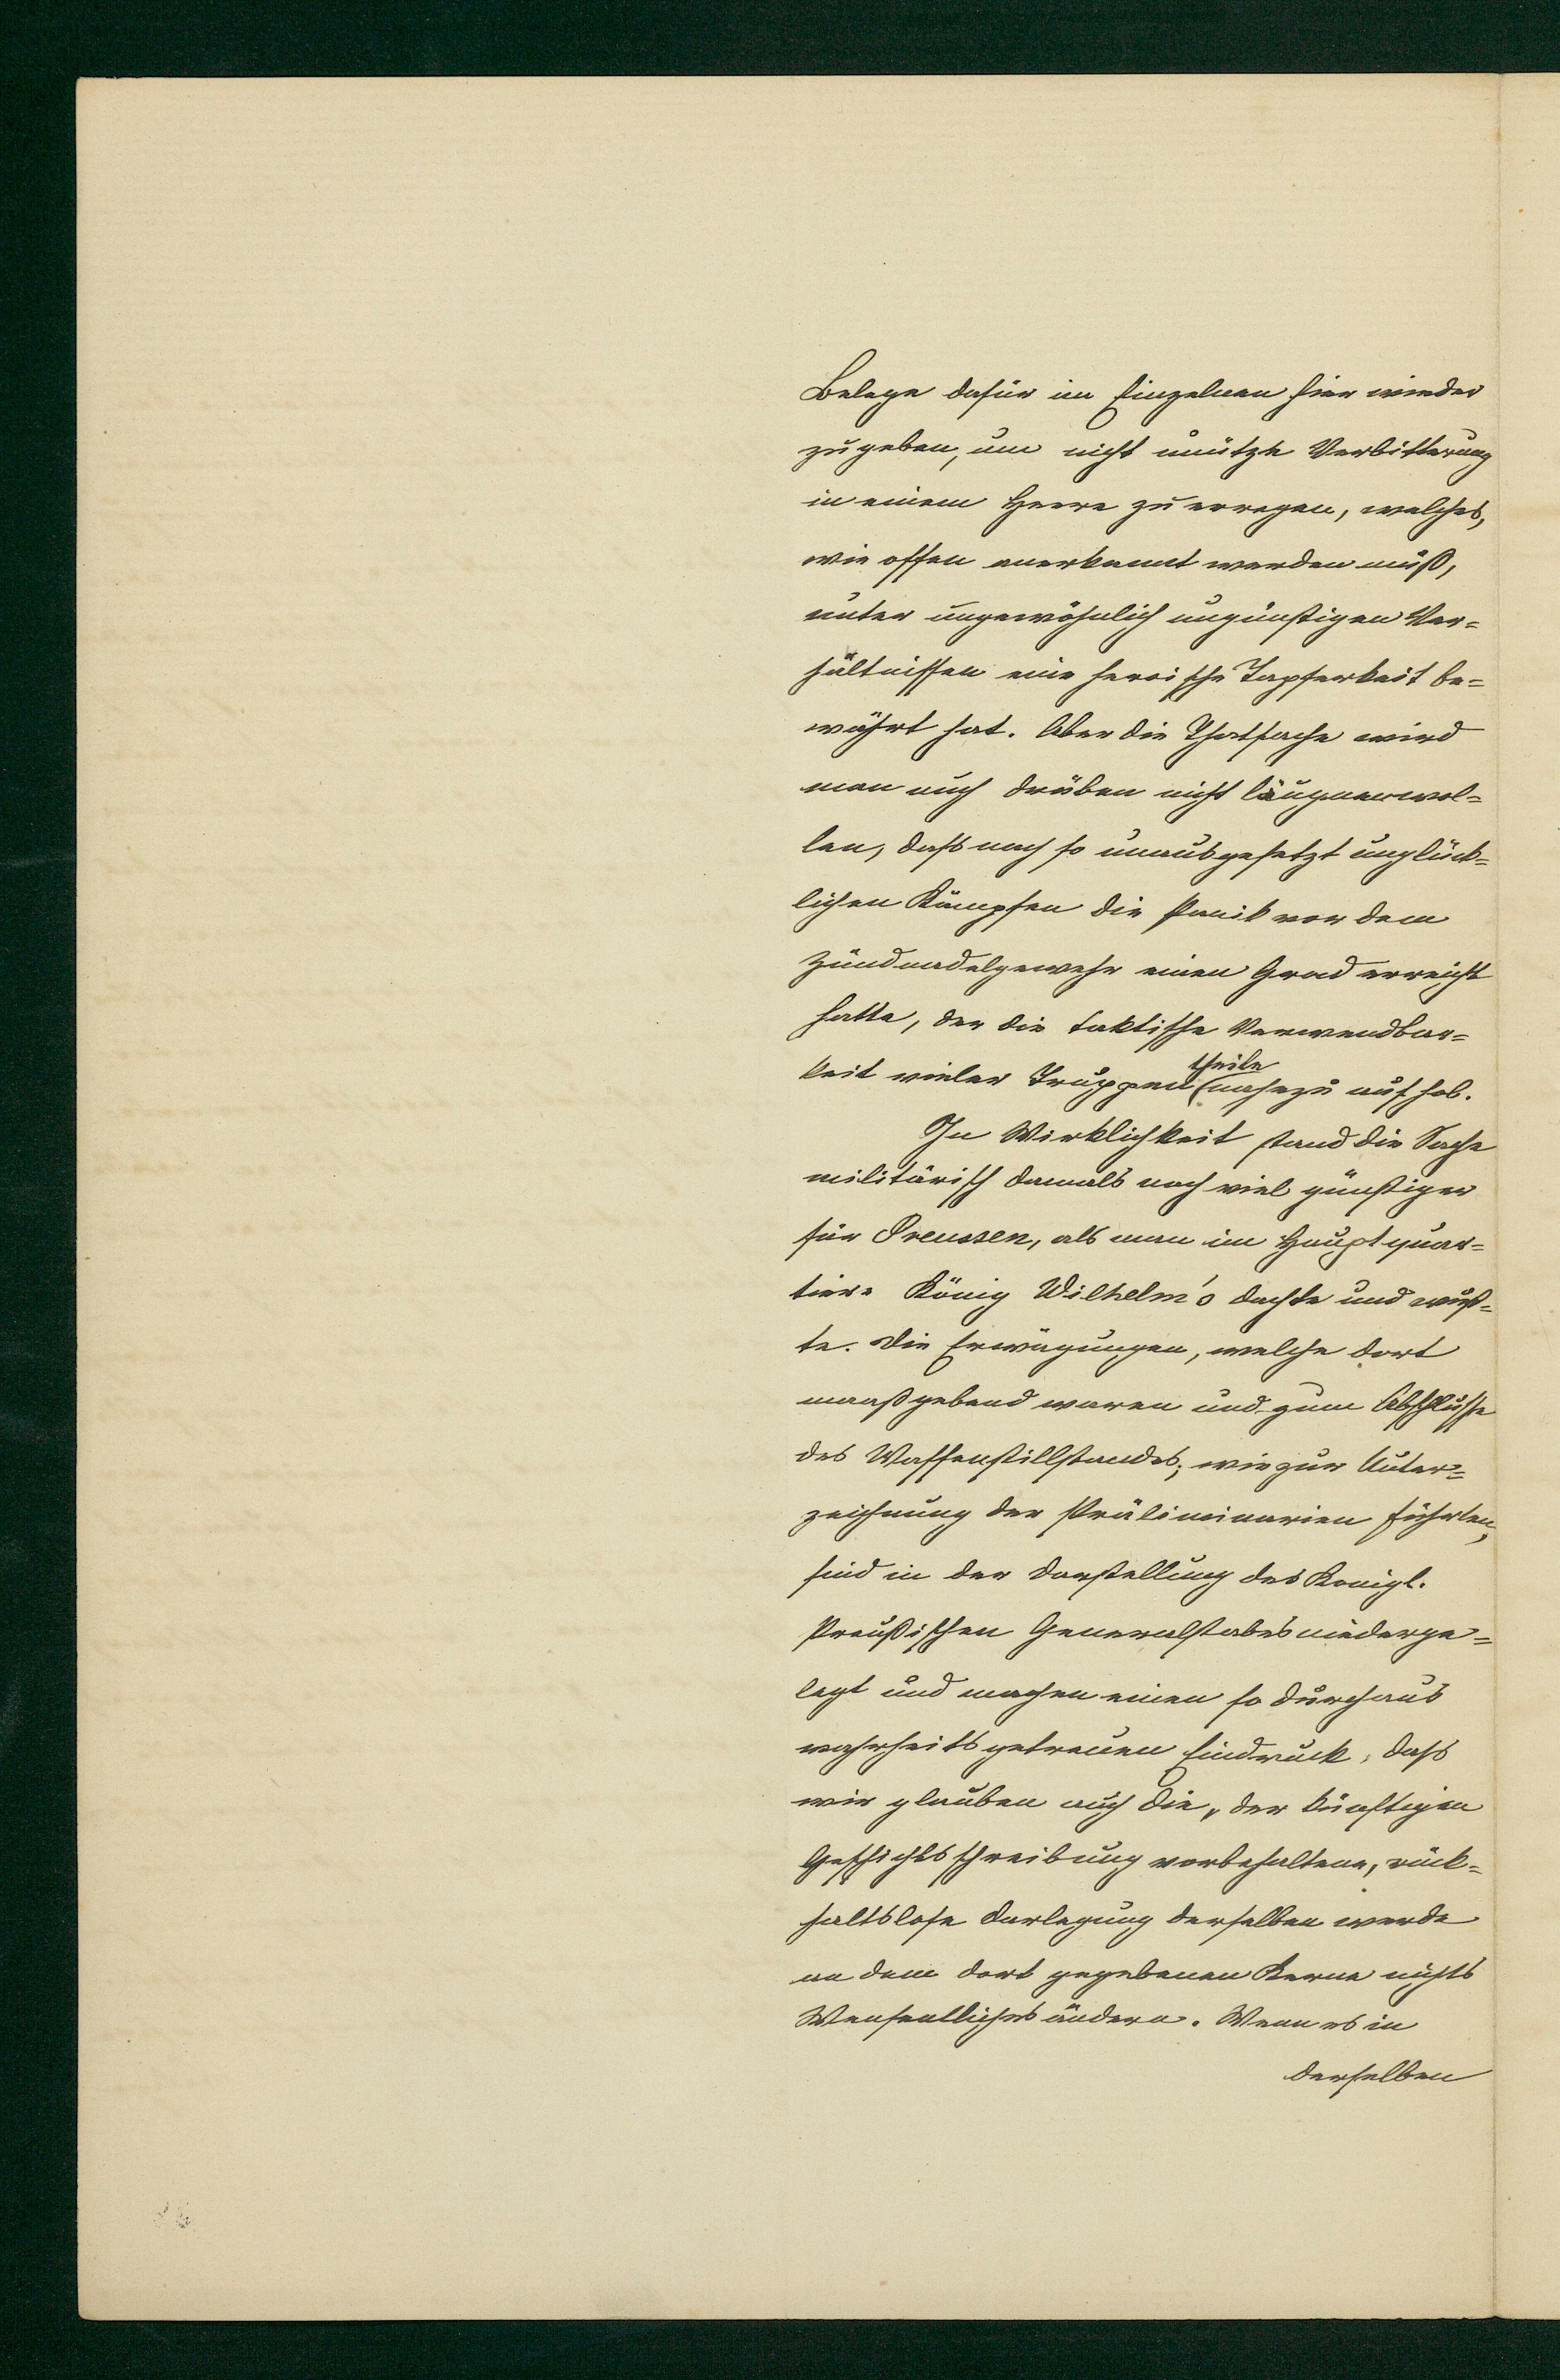 Belege dafür im Einzelnen hier wieder
zu geben, um nicht unütze Verbitterung
in einem Heere zu erregen, welches,
wie offen anerkannt werden muß,
unter ungewöhnlich ungünstigen Ver=
hältnissen eine heroische Tapferkeit be=
währt hat. Aber die Thatsache wird
man auch drüben nicht läugnen wol=
len, dass nach so unausgesetzt unglück=
lichen Kämpfen die Panik vor dem
Zündnadelgewehr einen Grad erreicht
hatte, der die taktische Verwendbar=
theile
keit vieler Truppen (nahezu aufhob.
In Wirklichkeit stand die Sache
militärisch damals noch viel günstiger
für Preussen, als man im Hauptquar=
tiere König Wilhelm's dachte und wuß=
te. Die Erwägungen, welche dort
maaßgebend waren und zum Abschlusse
des Waffenstillstandes, wie zur Unter=
zeichnung der Präliminarien führten,
sind in der Darstellung des Königl.
Preußischen Generalstabes niederge=
legt und machen einen so durchaus
wahrheitsgetreuen Eindruck, dass
wir glauben auch die, der künftigen
Geschichtsschreibung vorbehaltene, rück=
haltslose Darlegung derselben werde
an dem dort gegebenen Kerne nichts
Wensentliches ändern. Wenn es in
derselben